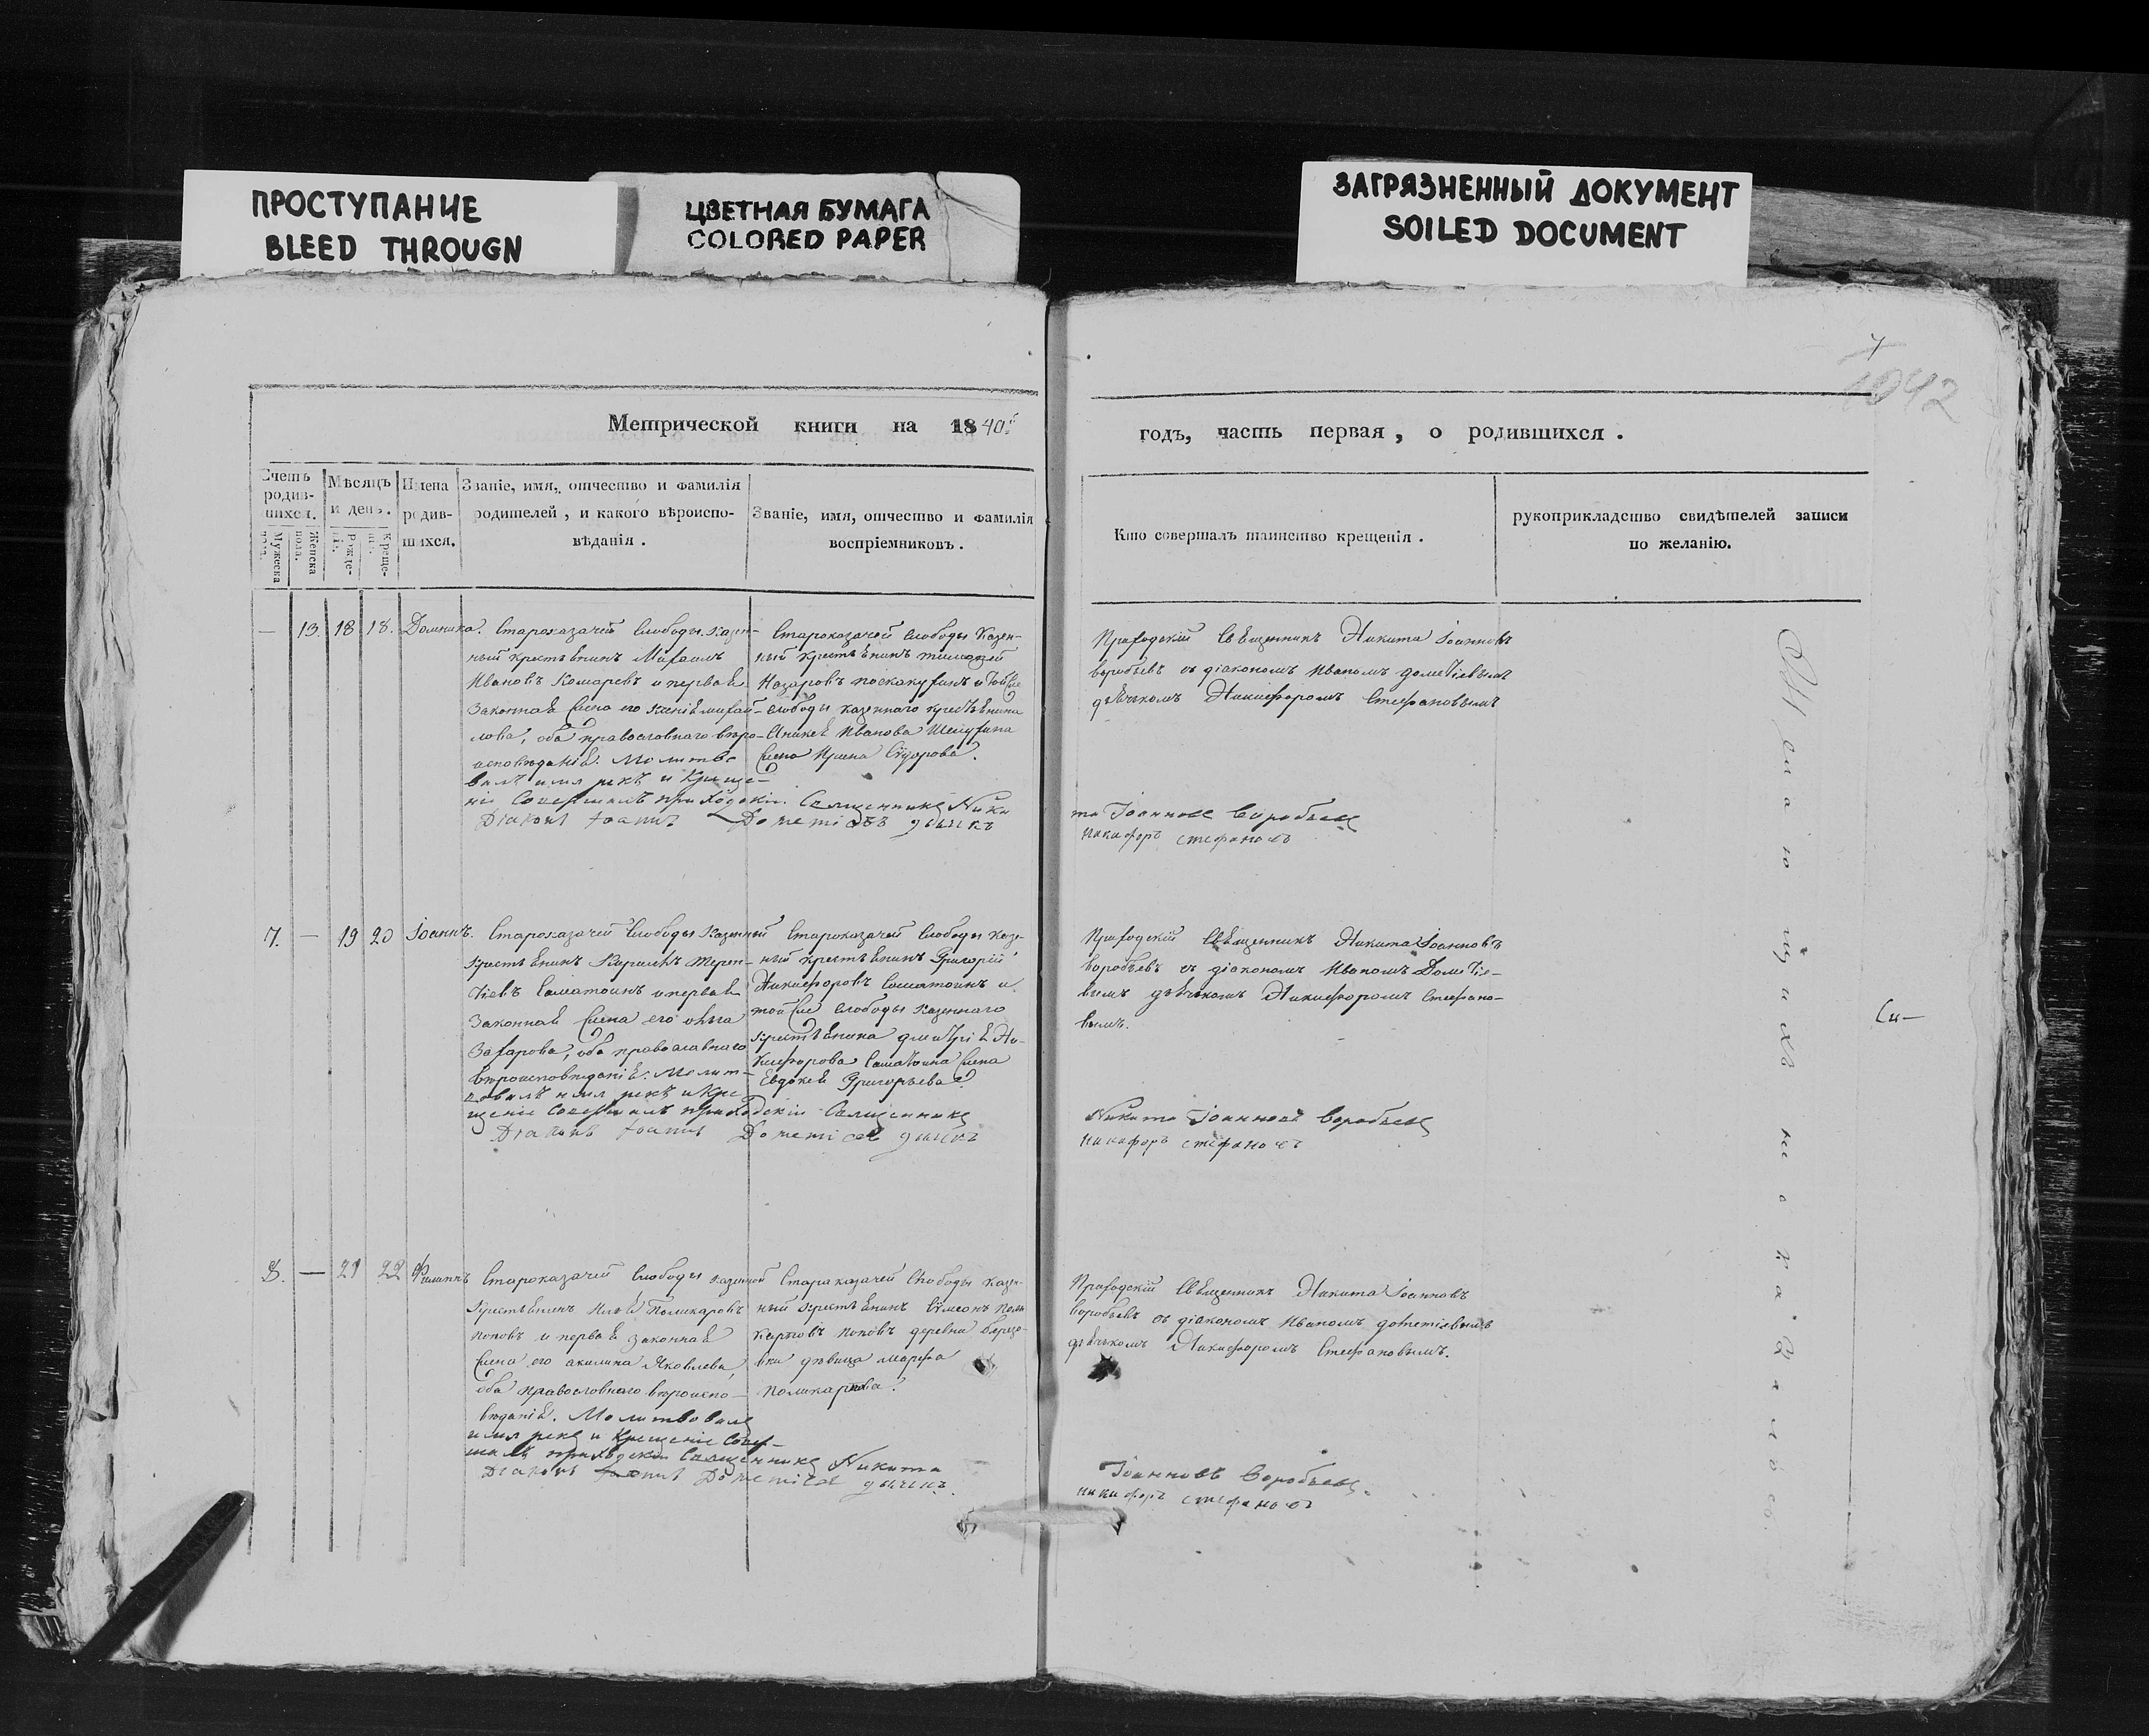 ПРОСТУПАНИЕ
BLEED THROUGN
ЦВЕТНАЯ БУМАГА
COLORED PAPER
ЗАГРЯЗНЕННЫЙ ДОКУМЕНТ
SOILED DOCUMENT
1042
Метрической книги на 1840й
годъ, часть первая, о родившихся.
Счетъ родившихся.
Мужеска пола.
Женска пола.
Мѣсяцъ и день.
Рожденія.
Крещенія.
Имена родившихся.
Званіе, имя, отчество и фамилія
родителей, и какого вѣроиспо-
вѣданія.
Званіе, имя, отчество и фамилія
воспріемниковъ.
Кто совершалъ таинство крещенія.
рукоприкладство свидѣтелей записи
по желанію.
— 13. 18 18. Домника.
Староказачей слободы казен-
ный крестьѣнинъ Михаилъ
Ивановъ Комаревъ и перваѣ
законнаѣ жена его Ксеніѣ михай-
лова, оба православнаго вѣро-
исповѣданіѣ. Молитво
валъ имя рекъ и Креще-
ніе Совершалъ приходскій Священникъ Ники
Діаконъ Іоаннъ Дометіевъ дьячекъ
Староказачей слободы Казен-
ный крестьѣнинъ
Назаровъ и той же
слободы казеннаго крестьѣнина
Иванова
жена Ирина Сидорова.
Приходскій Свѣщенникъ Никита Іоанновъ
воробьевъ съ діакономъ Иваномъ дометіевымъ
дьѣчкомъ Никифоромъ Стефановымъ
та Іоанновъ Воробьевъ
никифоръ стефановъ
7. — 19 20 Іоаннъ.
Староказачей Слободы Казенный
крестьѣнинъ терен-
тіевъ и перваѣ
Законнаѣ жена его
Захарова, оба православнаго
вѣроисповѣданіѣ. Молит-
вовалъ имя рекъ и Кре
щеніе Совершалъ приходскій Священникъ
Діаконъ Іоаннъ Дометіевъ дьячекъ
Староказачей Слободы казе-
ный крестьѣнинъ Григорій
Никифоровъ и
той же Слободы казеннаго
крестьѣнина дмитріѣ Ни-
кифорова жена
Евдокеѣ Григорьева.
Приходскій Свѣщенникъ Никита Іоанновъ
Воробьевъ съ діакономъ Иваномъ Дометіе-
вымъ дьѣчкомъ Никифоромъ Стефано-
вымъ.
Никита Іоанновъ Воробьевъ
никифоръ стефановъ
8. — 21 22
Староказачей Слободы казенной
крестьѣнинъ Поликаровъ
поповъ и перваѣ законнаѣ
жена его акилина Яковлева,
оба православнаго вѣроиспо-
вѣданіѣ. Молитвовалъ
имя рекъ и Крещеніе Совер-
шалъ приходскій Священникъ Никита
Діаконъ Іоаннъ Дометіевъ дьячекъ.
Стараказачей Слободы казен-
ный крестьѣнинъ Сѵмеонъ Поли
карповъ поповъ деревни березо-
вки дѣвица марфа
поликарпова.
Приходскій Свѣщенникъ Никита Іоанновъ
Воробьевъ съ діакономъ Иваномъ дометіевымъ
дьѣчкомъ Никифоромъ Стефановымъ.
Іоанновъ Воробьевъ.
никифоръ стефановъ